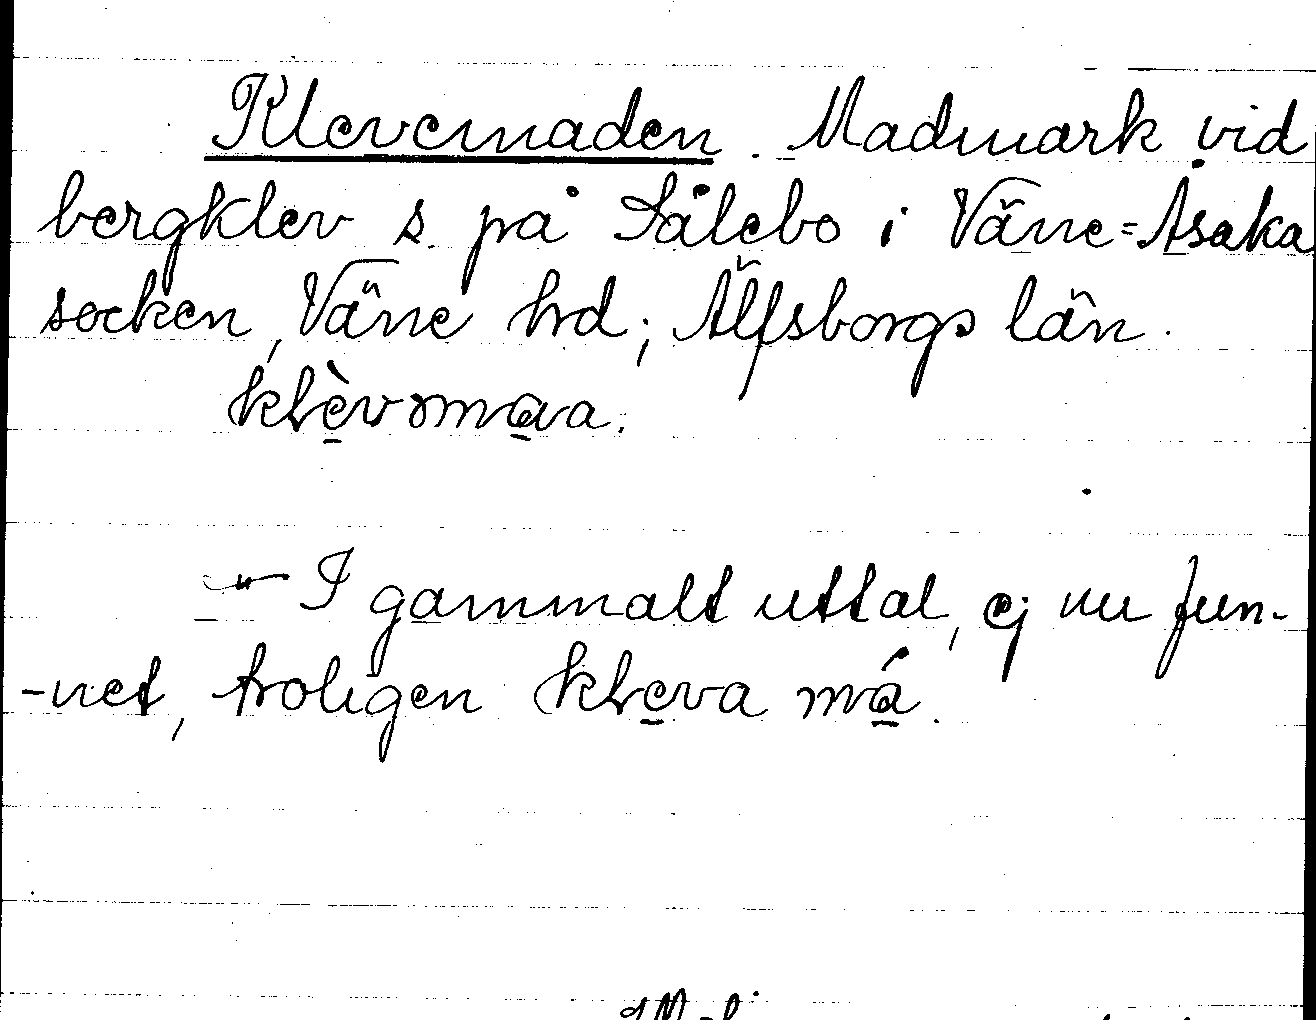 Klevemaden. Madmark vid
bergklev s. på Sålebo i Väne=Åsaka
socken, Väne hrd; Älfsborgs län.
klèvəmava.
— I gammalt uttal, ej nu fun-
-net, troligen kleva má.